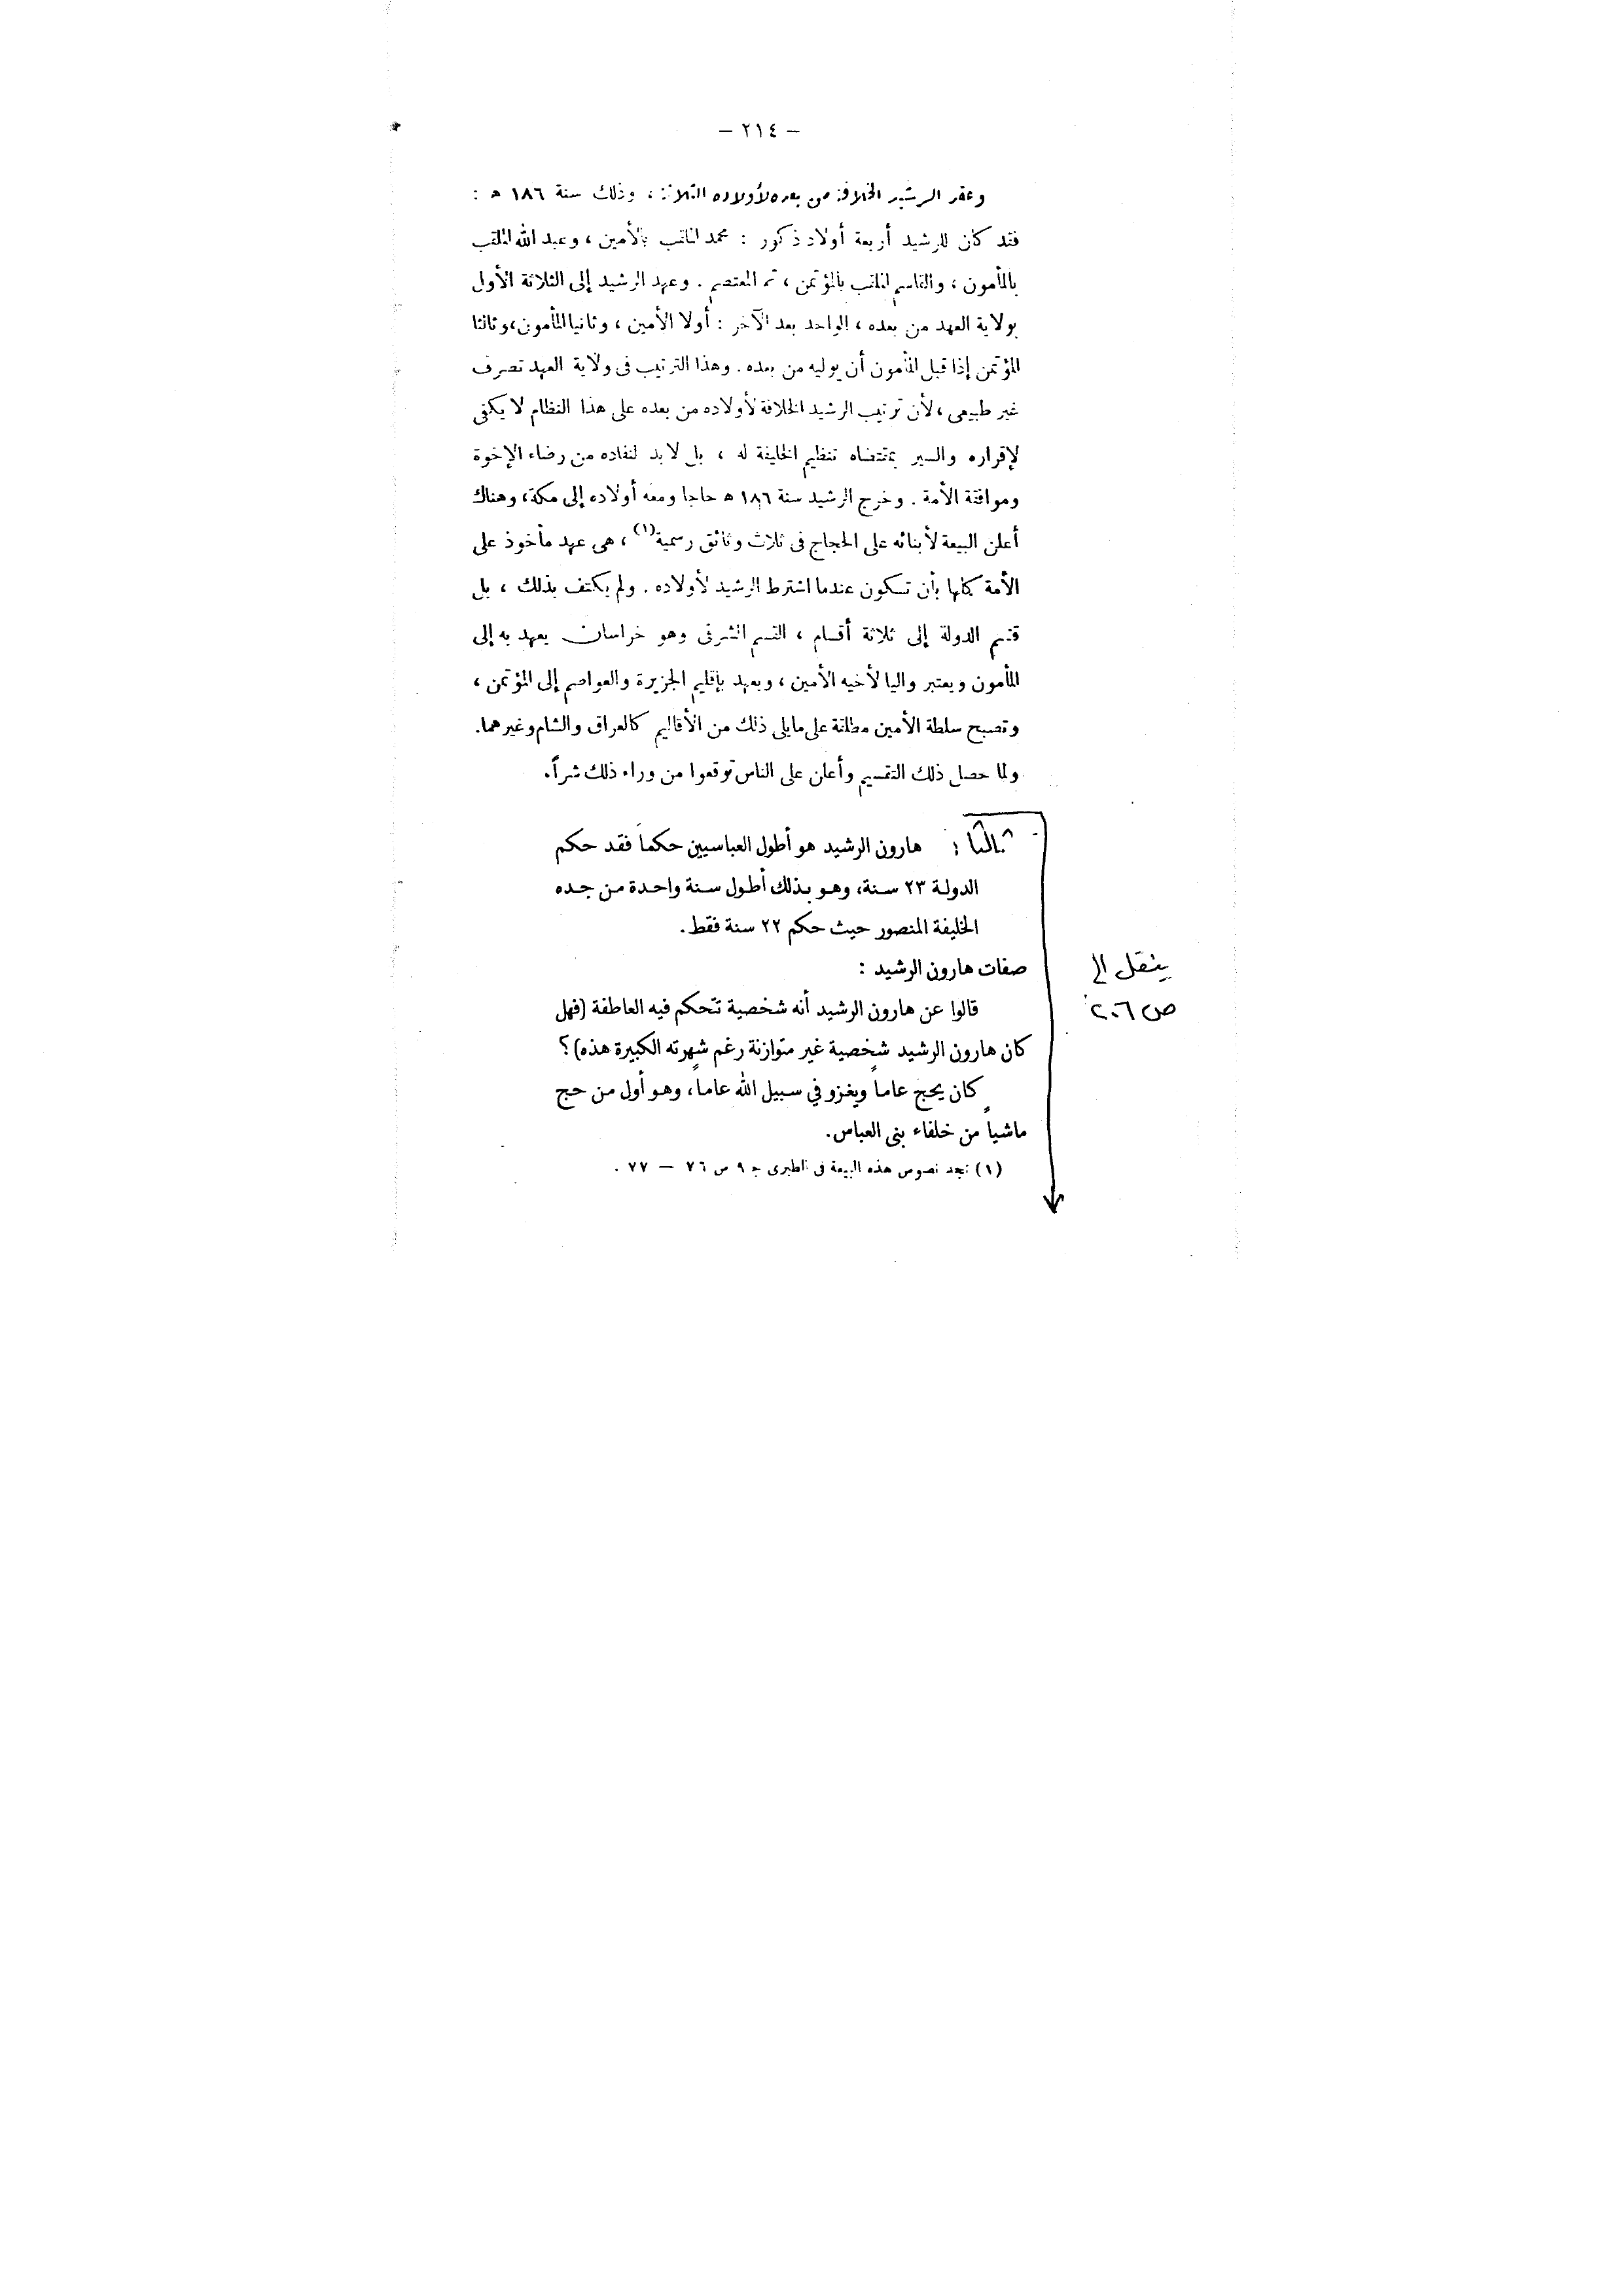 — ٢١٤ —
وعقد الرشيد الخلافة من بعده لأولاده الثلاثة ، وذلك سنة ١٨٦ ه :
فقد كان للرشيد أربعة أولاد ذكور : محمد الملقب بالأمين ، وعبد الله الملقب
بالمأمون ، والقاسم الملقب بالمؤتمن ، ثم المعتصم . وعهد الرشيد إلى الثلاثة الأول
بولاية العهد من بعده ، الواحد بعد الآخر : أولا الأمين ، وثانيا المأمون، وثالثا
المؤتمن إذا قبل المأمون أن يوليه من بعده . وهذا الترتيب فى ولاية العهد تصرف
غير طبيعى ، لأن ترتيب الرشيد الخلافة لأولاده من بعده على هذا النظام لا يكفى
لإقراره والسير بمقتضاه تنظيم الخليفة له ، بل لا بد لنفاذه من رضاء الإخوة
وموافقة الأمة . وخرج الرشيد سنة ١٨٦ ه حاجا ومعه أولاده إلى مكة، وهناك
أعلن البيعة لأبنائه على الحجاج فى ثلاث وثائق رسمية(١) ، هى عهد مأخوذ على
الأمة كلها بأن تكون عندما اشترط الرشيد لأولاده . ولم يكتف بذلك ، بل
قسم الدولة إلى ثلاثة أقسام ، القسم الشرقى وهو خراسان يعهد به إلى
المأمون ويعتبر واليا لأخيه الأمين ، ويعهد بإقليم الجزيرة والعواصم إلى المؤتمن ،
وتصبح سلطة الأمين مطلقة على مايلى ذلك من الأقاليم كالعراق والشام وغيرهما.
ولما حصل ذلك التقسيم وأعلن على الناس توقعوا من وراء ذلك شراً.
ثالثا : هارون الرشيد هو أطول العباسيين حكماً فقد حكم
الدولة ٢٣ سنة، وهو بذلك أطول سنة واحدة من جده
الخليفة المنصور حيث حكم ٢٢ سنة فقط.
صفات هارون الرشيد :
قالوا عن هارون الرشيد أنه شخصية تتحكم فيه العاطفة (فهل
كان هارون الرشيد شخصية غير متوازنة رغم شهرته الكبيرة هذه)؟
كان يحج عاماً ويغزو في سبيل الله عاماً، وهو أول من حج
ماشياً من خلفاء بنى العباس.
(١) تجد نصوص هذه البيعة فى الطبرى ج ٩ ص ٧٦ — ٧٧ .
ينقل الى
ص ٢٠٦